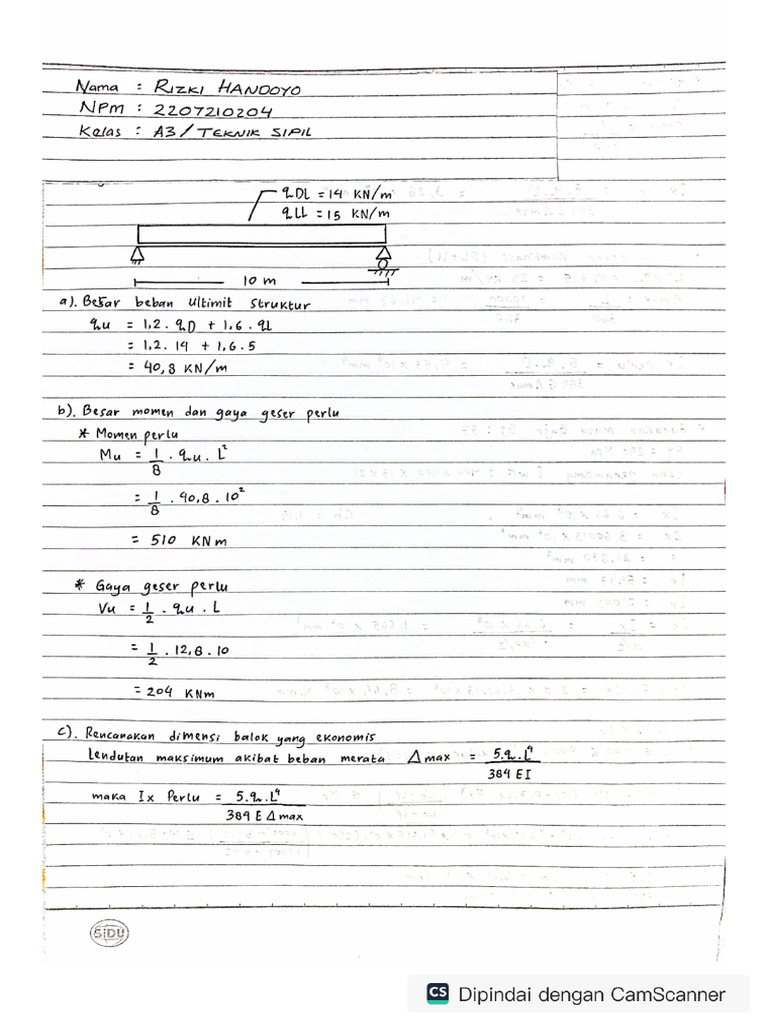 Nama : RIZKI HANDOYO
NPM : 2207210204
Kelas : A3 / TEKNIK SIPIL
qDL = 14 KN/m
qLL = 15 KN/m
10 m
a). Besar beban ultimit struktur
qu = 1,2 . qD + 1,6 . qL
= 1,2 . 14 + 1,6 . 5
= 40,8 KN/m
b). Besar momen dan gaya geser perlu
* Momen perlu
Mu = 1/8 . qu . L²
= 1/8 . 40,8 . 10²
= 510 KNm
* Gaya geser perlu
Vu = 1/2 . qu . L
= 1/2 . 12,8 . 10
= 204 KNm
c). Rencanakan dimensi balok yang ekonomis
Lendutan maksimum akibat beban merata Δmax = 5.q.L⁴ / 384 EI
maka Ix Perlu = 5.q.L⁴ / 384 E Δmax
SIDU
CS Dipindai dengan CamScanner